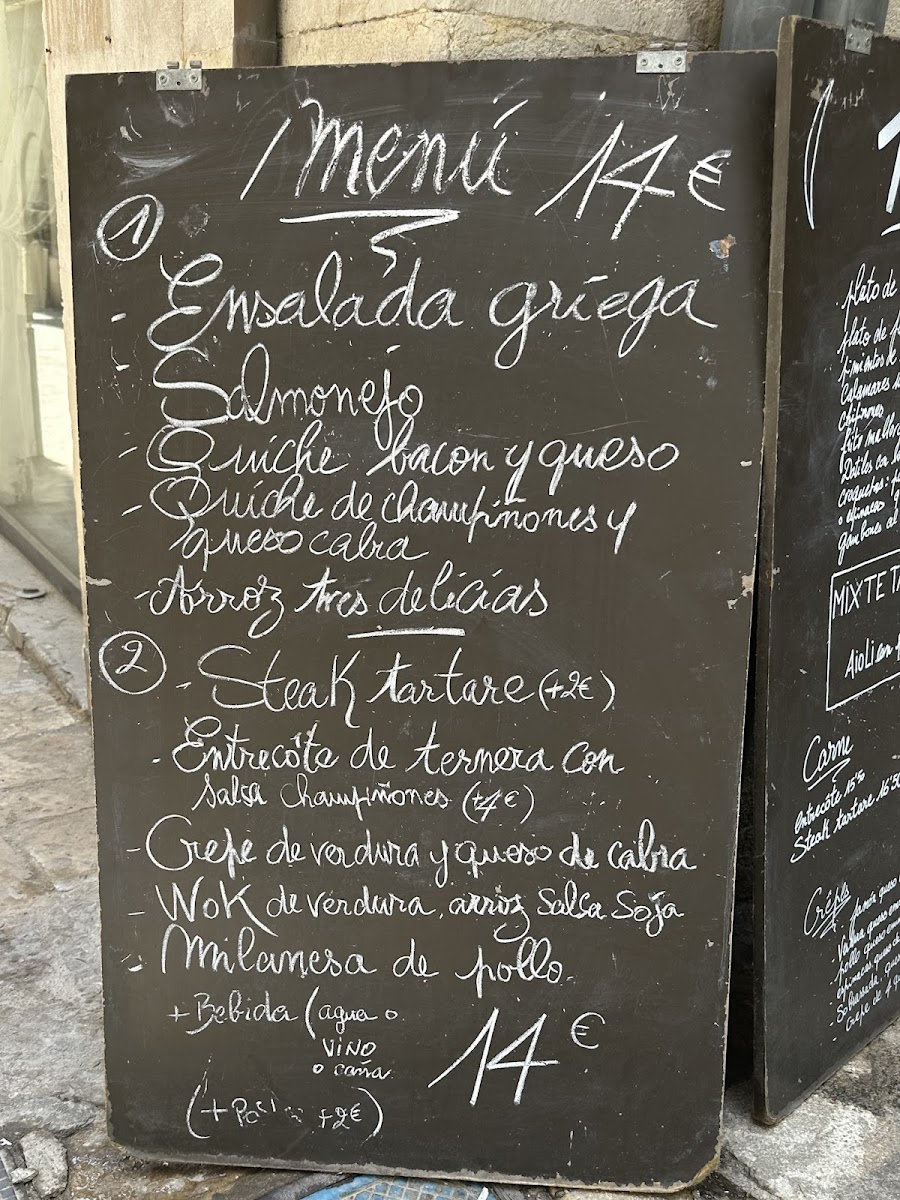 Menú 14€
1
- Ensalada griega
- Salmonejo
- Quiche bacon y queso
- Quiche de champiñones y
queso cabra
- Arroz tres delicias
2 - Steak tartare (+2€)
- Entrecôte de ternera con
salsa champiñones (+4€)
- Crepe de verdura y queso de cabra
- Wok de verdura, arroz salsa soja
- Milanesa de pollo
+ Bebida (agua o
vino
o caña
14€
+2€)
plato de
plato de
pimientos de
Calamares
Chipirones
Dátiles con
croquetas:
o espinacas
gambones al
MIXTE TA
Aioli
Carne
Entrecôte 15'50
Steak tartare 16'50
Crêpes
- Sobrasada,
- Crepe de